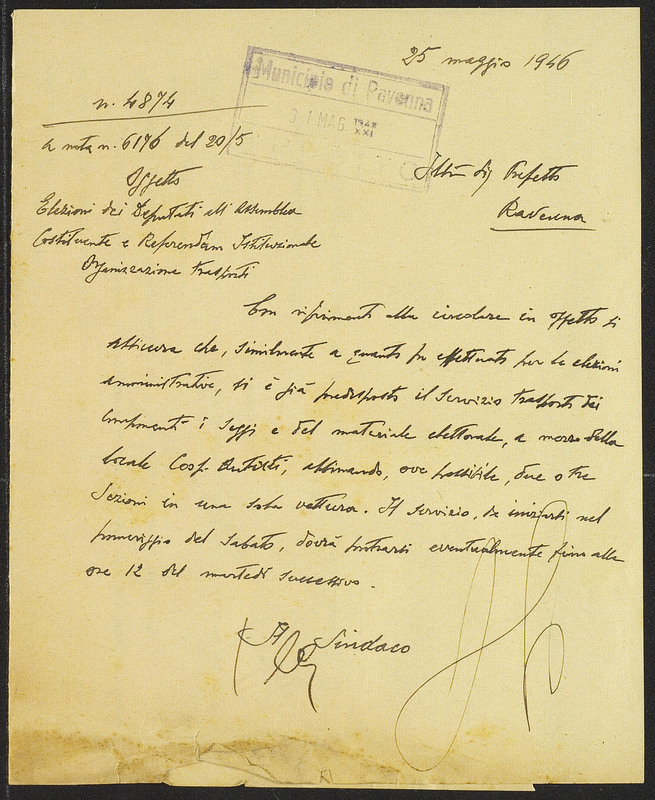 25 maggio 1946
Municipio di Ravenna
31 MAG 1943
XXI
n. 4874
a nota n. 6176 del 20/5
Ill.mo Sig. Prefetto
Ravenna
Oggetto
Elezioni dei Deputati all'Assemblea
Costituente e Referendum Istituzionale
Organizzazione trasporti
Con riferimento alla circolare in oggetto si
assicura che, similmente a quanto fu effettuato per le elezioni
amministrative, si è già predisposto il servizio trasporti dei
componenti i seggi e del materiale elettorale, a mezzo della
locale Coop. Autisti, abbinando, ove possibile, due o tre
Sezioni in una sola vettura. Il servizio, da iniziarsi nel
pomeriggio del Sabato, dovrà protrarsi eventualmente fino alle
ore 12 del martedì successivo.
Il Sindaco